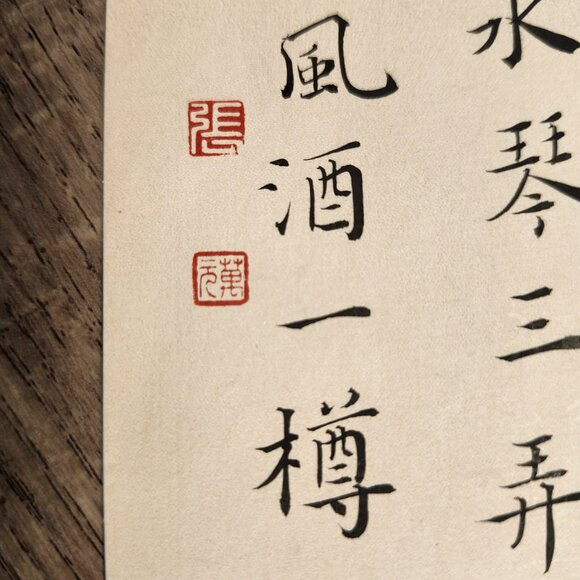 水琴三弄
風酒一樽
張
萬元